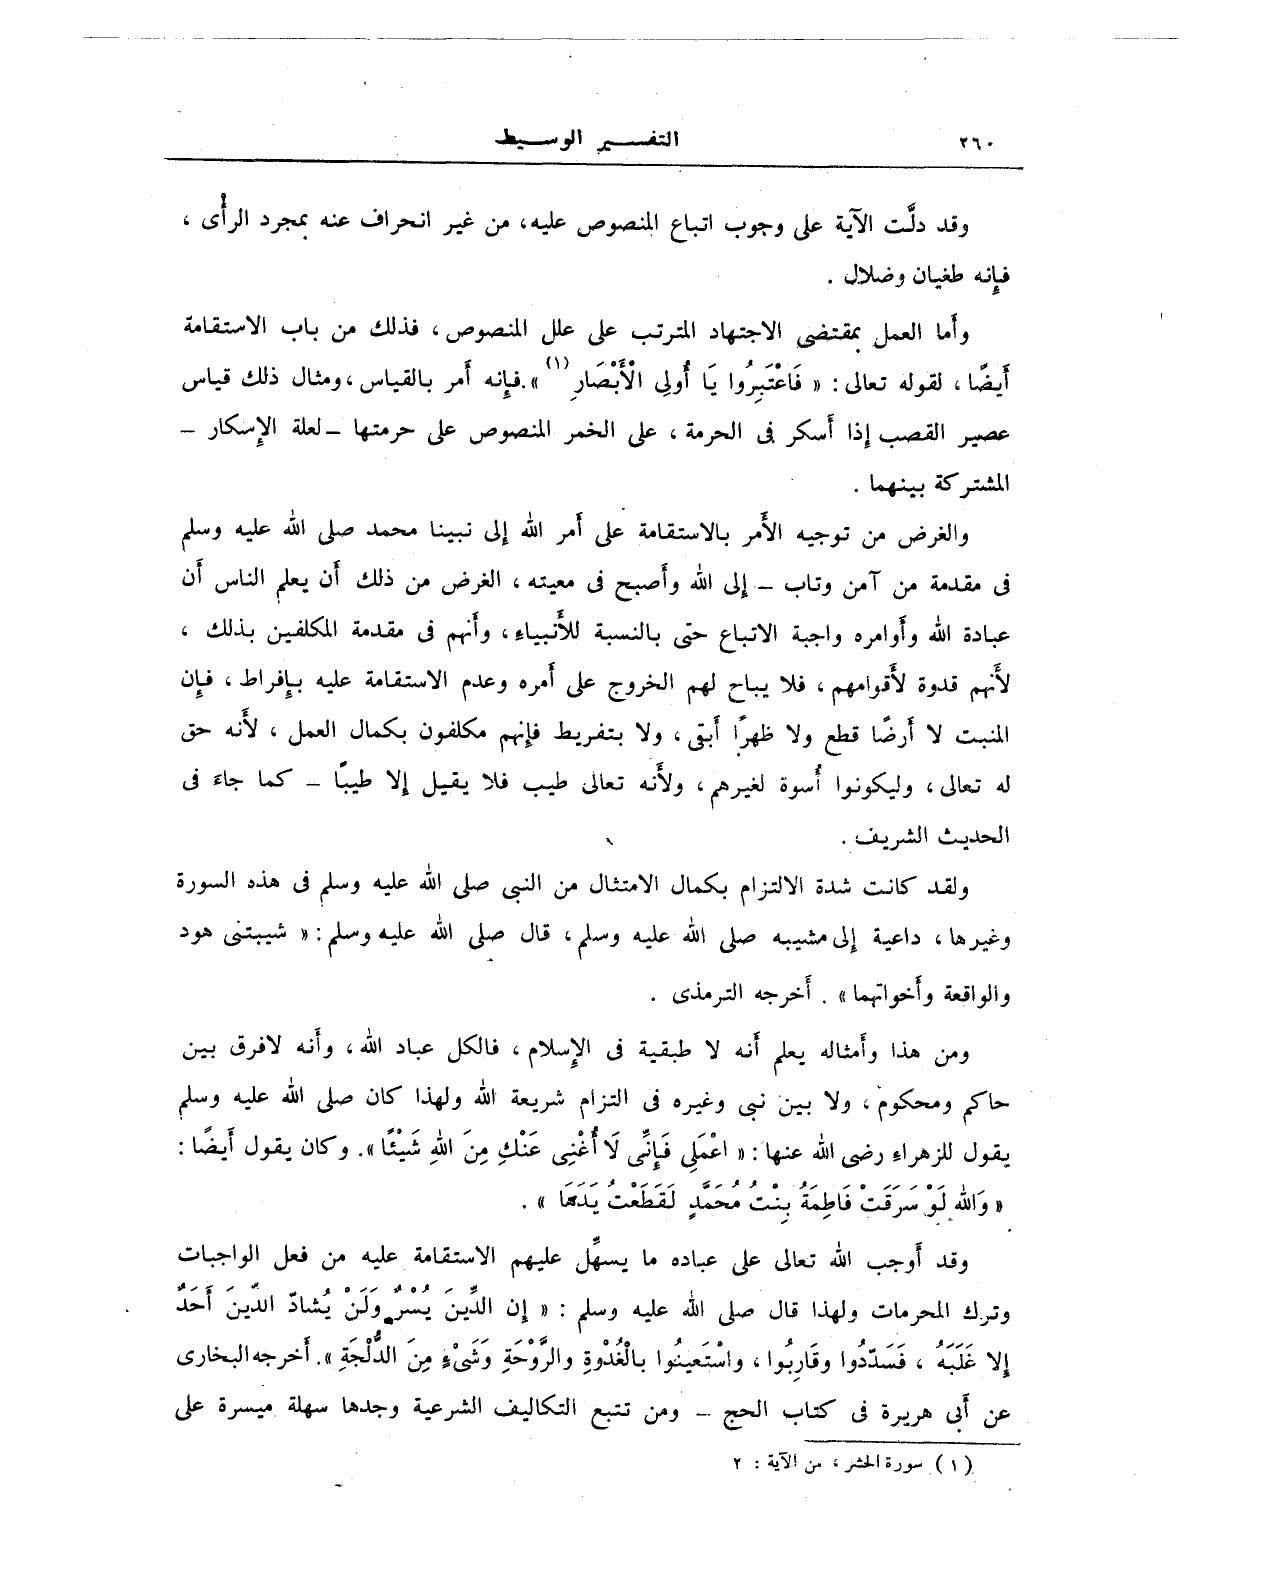 ٢٦٠
التفسير الوسيط
وقد دلَّت الآية على وجوب اتباع المنصوص عليه، من غير انحراف عنه بمجرد الرأْى ،
فإِنه طغيان وضلال .
وأَما العمل بمقتضى الاجتهاد المترتب على علل المنصوص ، فذلك من باب الاستقامة
أَيضًا ، لقوله تعالى : « فَاعْتَبِرُوا يَا أُولِى الْأَبْصَارِ (١) ». فإِنه أَمر بالقياس ، ومثال ذلك قياس
عصير القصب إِذا أَسكر فى الحرمة ، على الخمر المنصوص على حرمتها – لعلة الإِسكار –
المشتركة بينهما .
والغرض من توجيه الأَمر بالاستقامة على أَمر الله إِلى نبينا محمد صلى الله عليه وسلم
فى مقدمة من آمن وتاب – إِلى الله وأَصبح فى معيته ، الغرض من ذلك أَن يعلم الناس أَن
عبادة الله وأَوامره واجبة الاتباع حتى بالنسبة للأَنبياءِ ، وأَنهم فى مقدمة المكلفين بذلك ،
لأَنهم قدوة لأَقوامهم ، فلا يباح لهم الخروج على أَمره وعدم الاستقامة عليه بإِفراط ، فإِن
المنبت لا أَرضًا قطع ولا ظهرًا أَبقى ، ولا بتفريط فإِنهم مكلفون بكمال العمل ، لأَنه حق
له تعالى ، وليكونوا أُسوة لغيرهم ، ولأَنه تعالى طيب فلا يقبل إِلا طيبًا – كما جاءَ فى
الحديث الشريف .
ولقد كانت شدة الالتزام بكمال الامتثال من النبى صلى الله عليه وسلم فى هذه السورة
وغيرها ، داعية إِلى مشيبه صلى الله عليه وسلم ، قال صلى الله عليه وسلم : « شيبتنى هود
والواقعة وأَخواتهما » . أَخرجه الترمذى .
ومن هذا وأَمثاله يعلم أَنه لا طبقية فى الإِسلام ، فالكل عباد الله ، وأَنه لافرق بين
حاكم ومحكوم ، ولا بين نبى وغيره فى التزام شريعة الله ولهذا كان صلى الله عليه وسلم
يقول للزهراءِ رضى الله عنها : « اعْمَلِى فَإِنِّى لَا أُغْنِى عَنْكِ مِنَ اللهِ شَيْئًا ». وكان يقول أَيضًا :
« وَاللهِ لَوْ سَرَقَتْ فَاطِمَةُ بِنْتُ مُحَمَّدٍ لَقَطَعْتُ يَدَهَا » .
وقد أَوجب الله تعالى على عباده ما يسهِّل عليهم الاستقامة عليه من فعل الواجبات
وترك المحرمات ولهذا قال صلى الله عليه وسلم : « إِن الدِّينَ يُسْرٌ وَلَنْ يُشادّ الدِّينَ أَحَدٌ
إِلا غَلَبَهُ ، فَسَدِّدُوا وقَارِبُوا ، واسْتَعِينُوا بالْغُدْوةِ والرَّوْحَةِ وَشَىْءٍ مِنَ الدُّلْجَةِ ». أَخرجه البخارى
عن أَبى هريرة فى كتاب الحج – ومن تتبع التكاليف الشرعية وجدها سهلة ميسرة على
(١) سورة الحشر ، من الآية : ٢